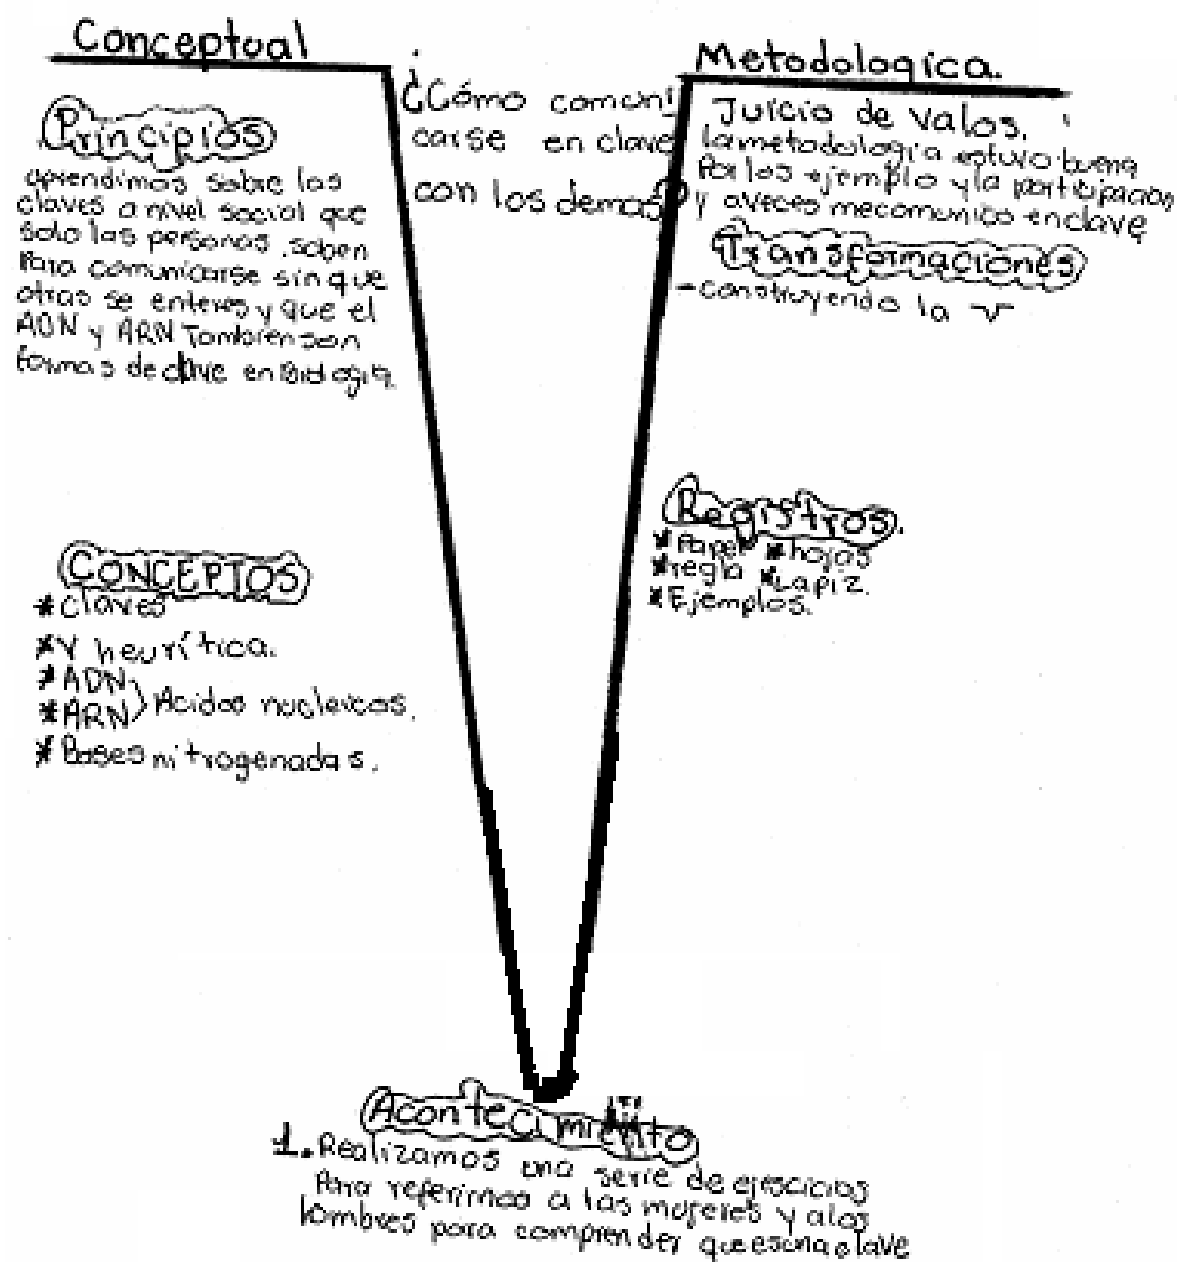 Conceptual
Principios
aprendimos sobre las
claves a nivel social que
solo las personas saben
Para comunicarse sin que
otras se enteres y que el
ADN y ARN Tambien son
formas de clave en Biologia.
CONCEPTOS
*Claves
*V heurítica.
*ADN
*ARN } Acidos nucleicos.
*Bases nitrogenadas.
¿Cómo comuni
carse en clave
con los demas?
Metodologica.
Juicio de valos.
la metodologia estuvo buena
Por los ejemplo y la participacion
y aveces me comunico en clave
Transformaciones
-construyendo la V
Registros.
*Papel *hojas
*regla *Lapiz.
*Ejemplos.
Acontecimiento
1. Realizamos una serie de ejercicios
Para referirnos a las mujeres y a los
hombres para comprender que es una clave